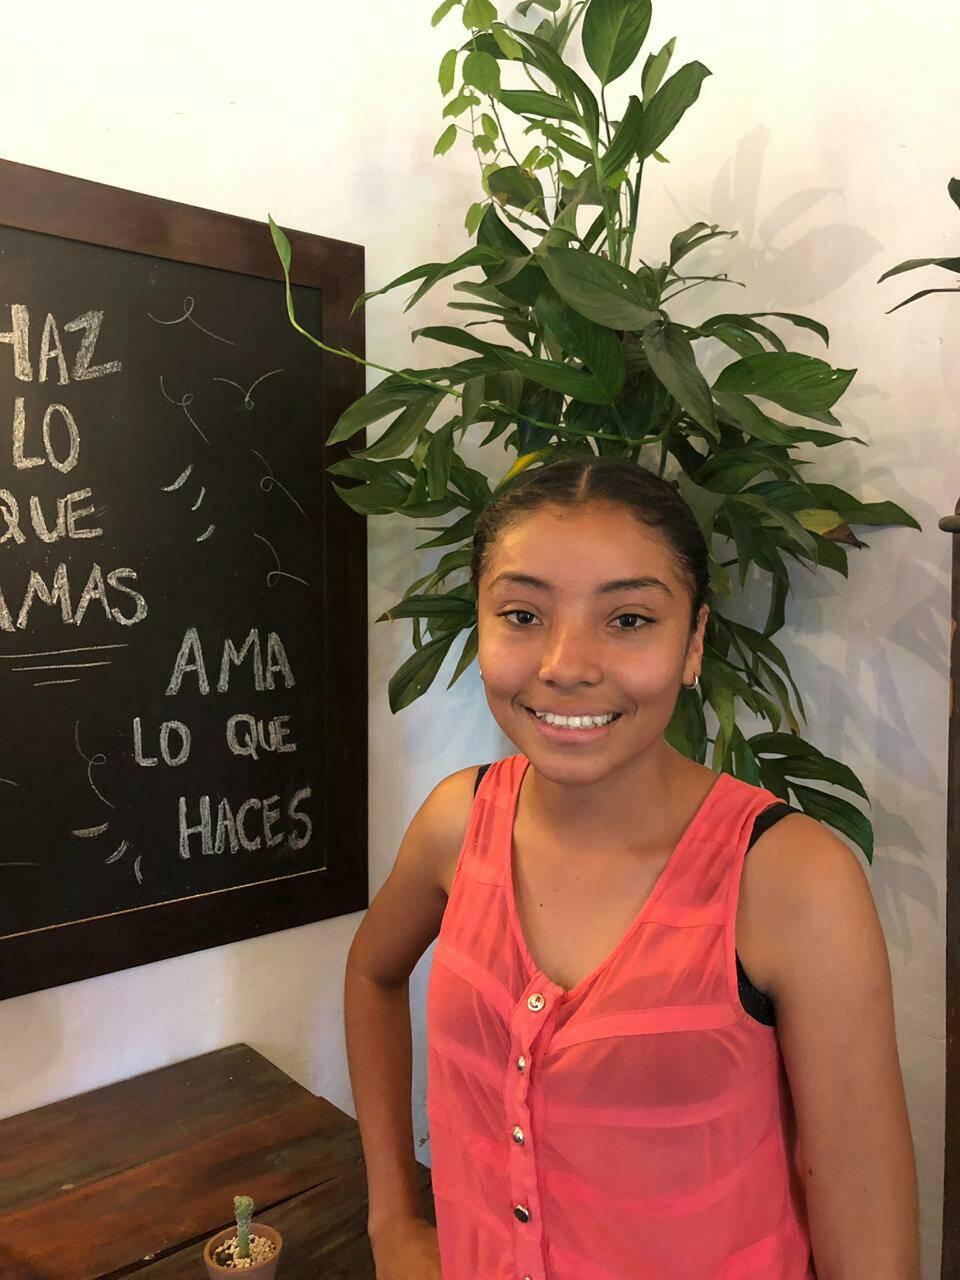 HAZ
LO
QUE
AMAS
AMA
LO QUE
HACES